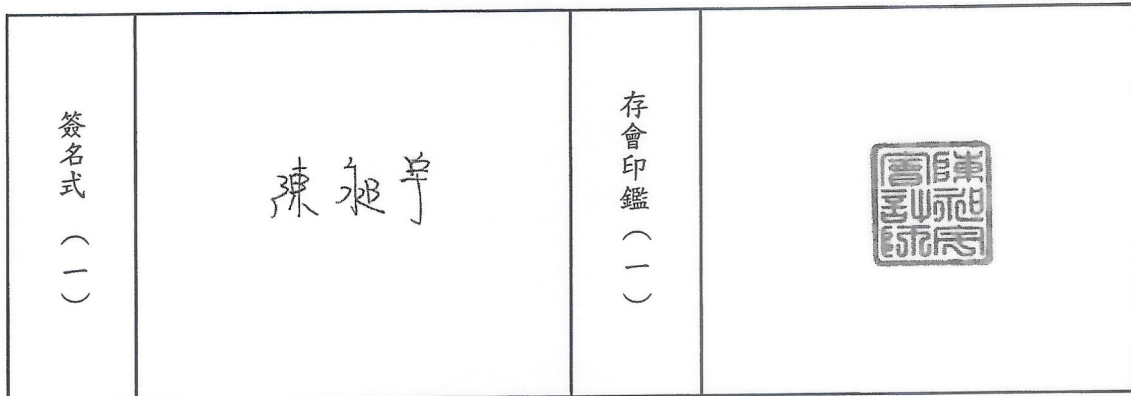 簽名式（一）
陳昶宇
存會印鑑（一）
陳昶宇
會計師